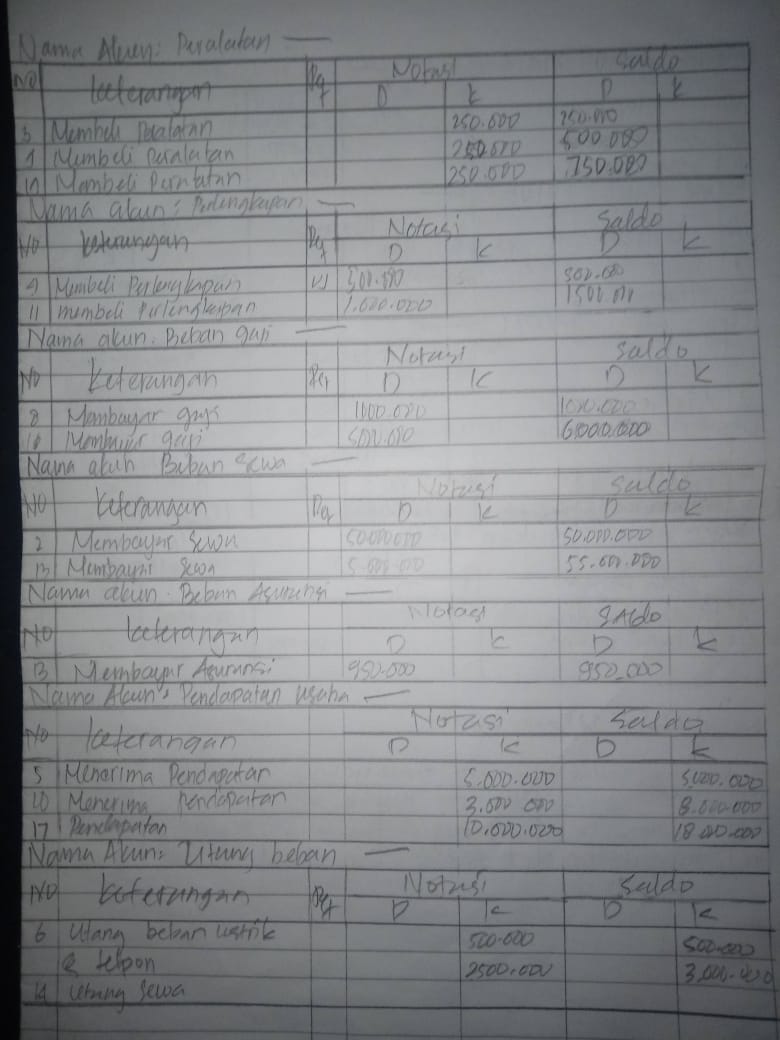 Nama Akun: Peralatan —
NO Keterangan Ref Notasi Saldo
D K D K
3 Membeli Peralatan 250.000 250.000
Membeli Peralatan 250.000 500.000
Membeli Peralatan 250.000 750.000
Nama akun: Perlengkapan —
NO Keterangan Ref Notasi Saldo
D K D K
9 Membeli Perlengkapan 500.000 500.000
11 membeli Perlengkapan 1.000.000 1500.000
Nama akun. Beban gaji —
NO Keterangan Ref Notasi Saldo
D K D K
8 Membayar gaji 1000.000
Membayar gaji 6000.000
Nama akun Beban Sewa —
NO Keterangan Ref Notasi Saldo
D K D K
2 Membayar Sewa 50.000.000
Membayar Sewa 5.000.000 55.000.000
Nama akun. Beban Asuransi —
NO Keterangan Notasi SAldo
D K D K
13 Membayar Asuransi 950.000 950.000
Nama Akun: Pendapatan usaha —
NO Keterangan Notasi Saldo
D K D K
5 Menerima Pendapatan 5.000.000 5.000.000
10 Menerima Pendapatan 3.000.000 8.000.000
17 Pendapatan 10.000.000 18.000.000
Nama Akun: Utang beban —
NO Keterangan Ref Notasi Saldo
D K D K
6 Utang beban listrik 500.000 500.000
& telpon 2500.000 3.000.000
14 Utang Sewa